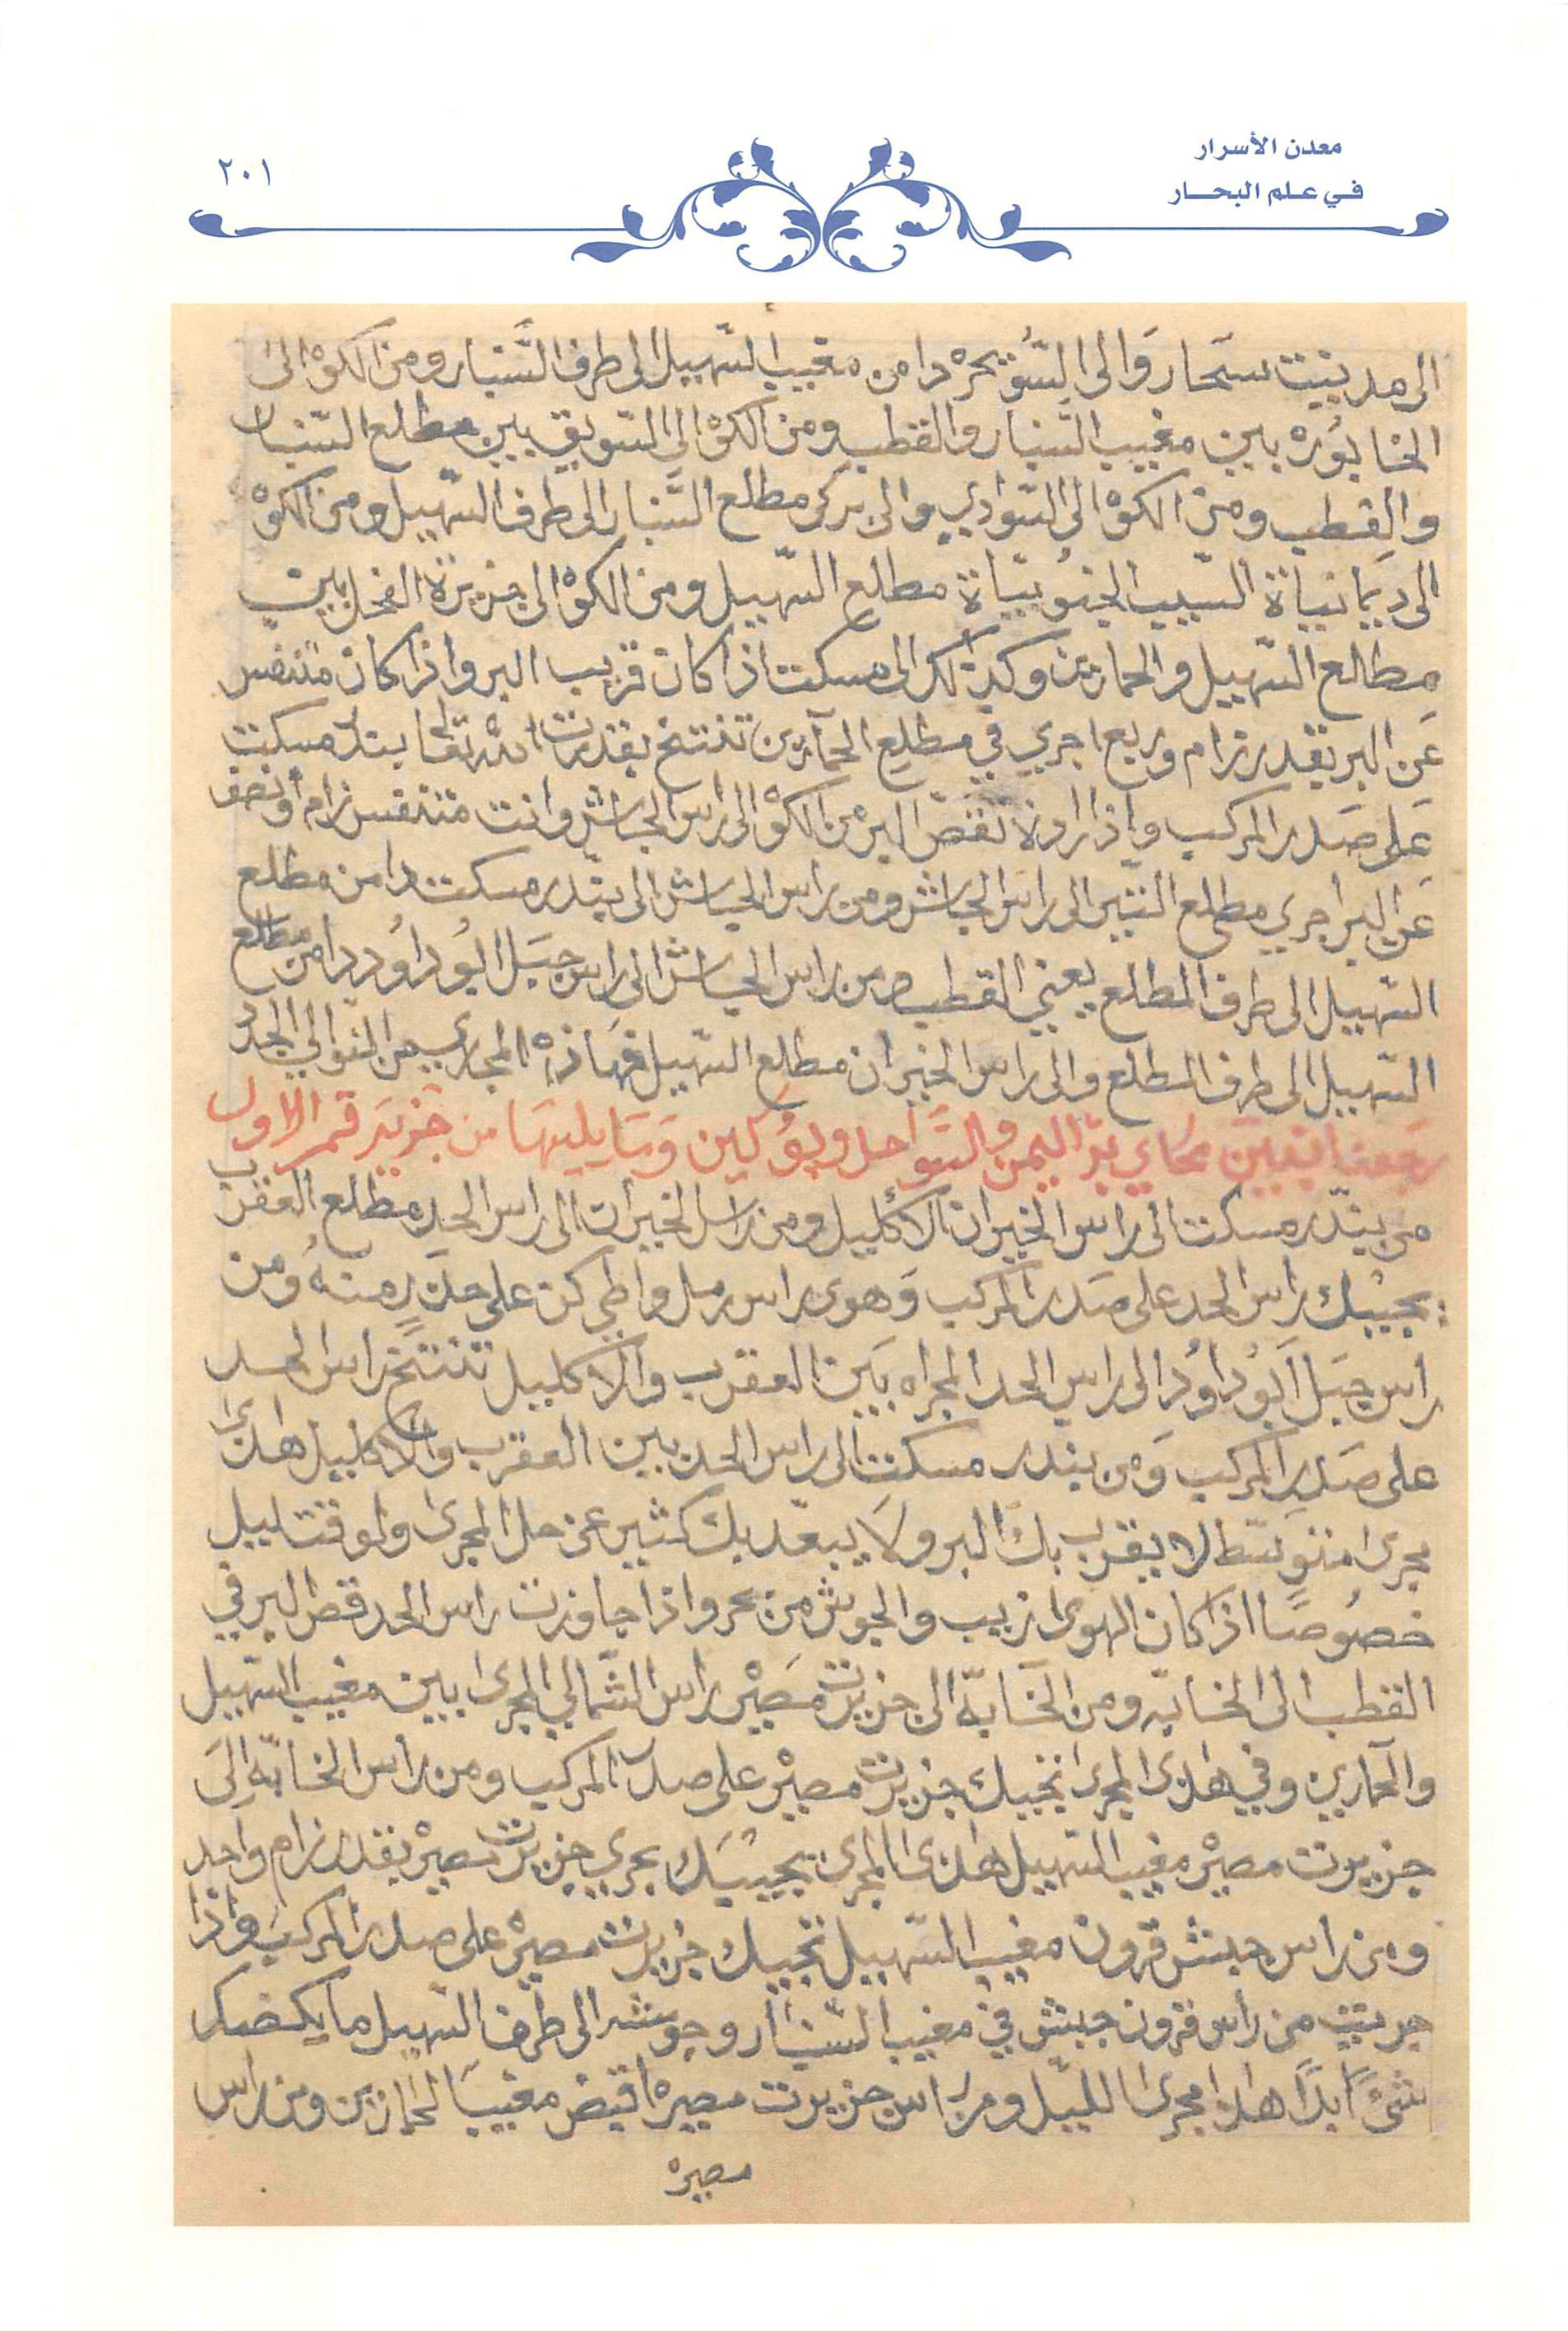 معدن الأسرار
في علم البحار
٢٠١
الى مدينيت سحار وَالى السُّويحره دامن مغيب السّهيل الى طرف السّنبار ومن الكوْ الى
الخابُوره بين مغيب السّنبار والقطب ومن الكوْ الى السّويق بين مطلع السّنبار
والقطب ومن الكوْ الى السّوادي والى بركى مطلع السّنبار الى طرف السّهيل ومن الكوْ
الى ديمانياة السّيب الجنُوبيّاة مطلع السّهيل ومن الكوْ الى جزيرة الفحل بين
مطلع السّهيل والحمارين وكذلك الى مسكت اذا كان قريب البر واذا كان متنفس
عَن البر بقدر زام وربع اجري في مطلع الحمآرين تنتخ بقدرت الله تعالى بندر مسكت
عَلى صَدر المركب واذا اردة تقصّ البر من الكوْ الى راس الحياش وانت متنفس زام أونصف
عَن البر اجري مطلع التّير الى راس الحياش ومن راس الحياش الى بندر مسكت دامن مطلع
السّهيل الى طرف المطلع يعني القطب ومن راس الحياش الى راس جبَل ابُو داوُد دامن مطلع
السّهيل الى طرف المطلع والى راس الخيران مطلع السّهيل فهَاذهْ المجاري من المنوالي الجدد
بَر اليمن والسَّوَاحل وَمَا يليهَا من جَزيرَ قمر الاول
من بندر مسكت الى راس الخيران الاكليل ومن راس الخيران الى راس الحد مطلع العقرب
يجيْبك راس الحد على صَدر المركب وَهوى راس رمل واطي كن على حذَر منهُ ومن
راس جبَل ابُو داوُد الى راس الحد المجراه بَين العقرب والاكليل تنتخ راس الحد
على صَدر المركب وَمن بندر مسكت الى راس الحد بين العقرب والاكليل هاذى
مجرى متوسّط لا يقرب بك البر ولا يبعّد بك كثير عن حل المجرى ولوقت ليل
خصُوصًا اذا كان الهوى ازيب والجوش من بحر واذا جاوزت راس الحد قص البر في
القطب الى الخابّه ومن الخَابّة الى جزيرت مَصيْر راس الشّمالي المجرى بين مغيب السّهيل
والحمارين وفي هاذى المجرى تجيبك جزيرت مصيْر على صدر المركب ومن راس الخابّة الى
جزيرت مصيْر مغيب السّهيل هاذى المجرى يجيبَك بحري جزيرت مصيْر بقدر زام واحد
ومن راس جبنش قرون مغيب السّهيل تجيبك جزيرت مصيْر على صدر المركب واذا
جريت من رأس قرون جبنش في مغيب السّنبار وجوشه الى طرف السّهيل ما يكضك
شئ ابدًا هاذا مجرى الليل ومن راس جزيرت مصيره اقبض مغيب الحمارين ومن راس
مصيره